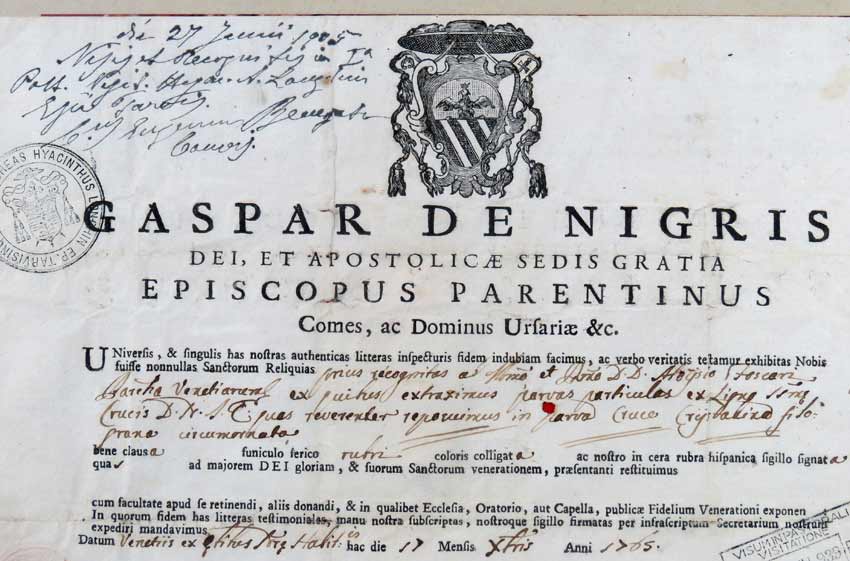 die 27 Junii
GASPAR DE NIGRIS
DEI, ET APOSTOLICÆ SEDIS GRATIA
EPISCOPUS PARENTINUS
Comes, ac Dominus Ursariæ &c.
UNiversis, & singulis has nostras authenticas litteras inspecturis fidem indubiam facimus, ac verbo veritatis testamur exhibitas Nobis
fuisse nonnullas Sanctorum Reliquias prius recognitas a et D. D. Aloysio Foscari
Venetiarum ex quibus extraximus parvas particulas ex Ligno
Crucis D. N. J. C. quas reverenter reposuimus in parva Cruce Crystallina filo-
grana circumornata
bene clausa funiculo serico rubri coloris colligata ac nostro in cera rubra hispanica sigillo signata
quas ad majorem DEI gloriam, & suorum Sanctorum venerationem, præsentanti restituimus
cum facultate apud se retinendi, aliis donandi, & in qualibet Ecclesia, Oratorio, aut Capella, publicæ Fidelium Venerationi exponen
In quorum fidem has litteras testimoniales, manu nostra subscriptas, nostroque sigillo firmatas per infrascriptum Secretarium nostrum
expediri mandavimus
Datum Venetiis ex hac die 17 Mensis Xbris Anni 1765.
HYACINTHUS EP. TARVISINUS
VISUM IN
VISITATIONE